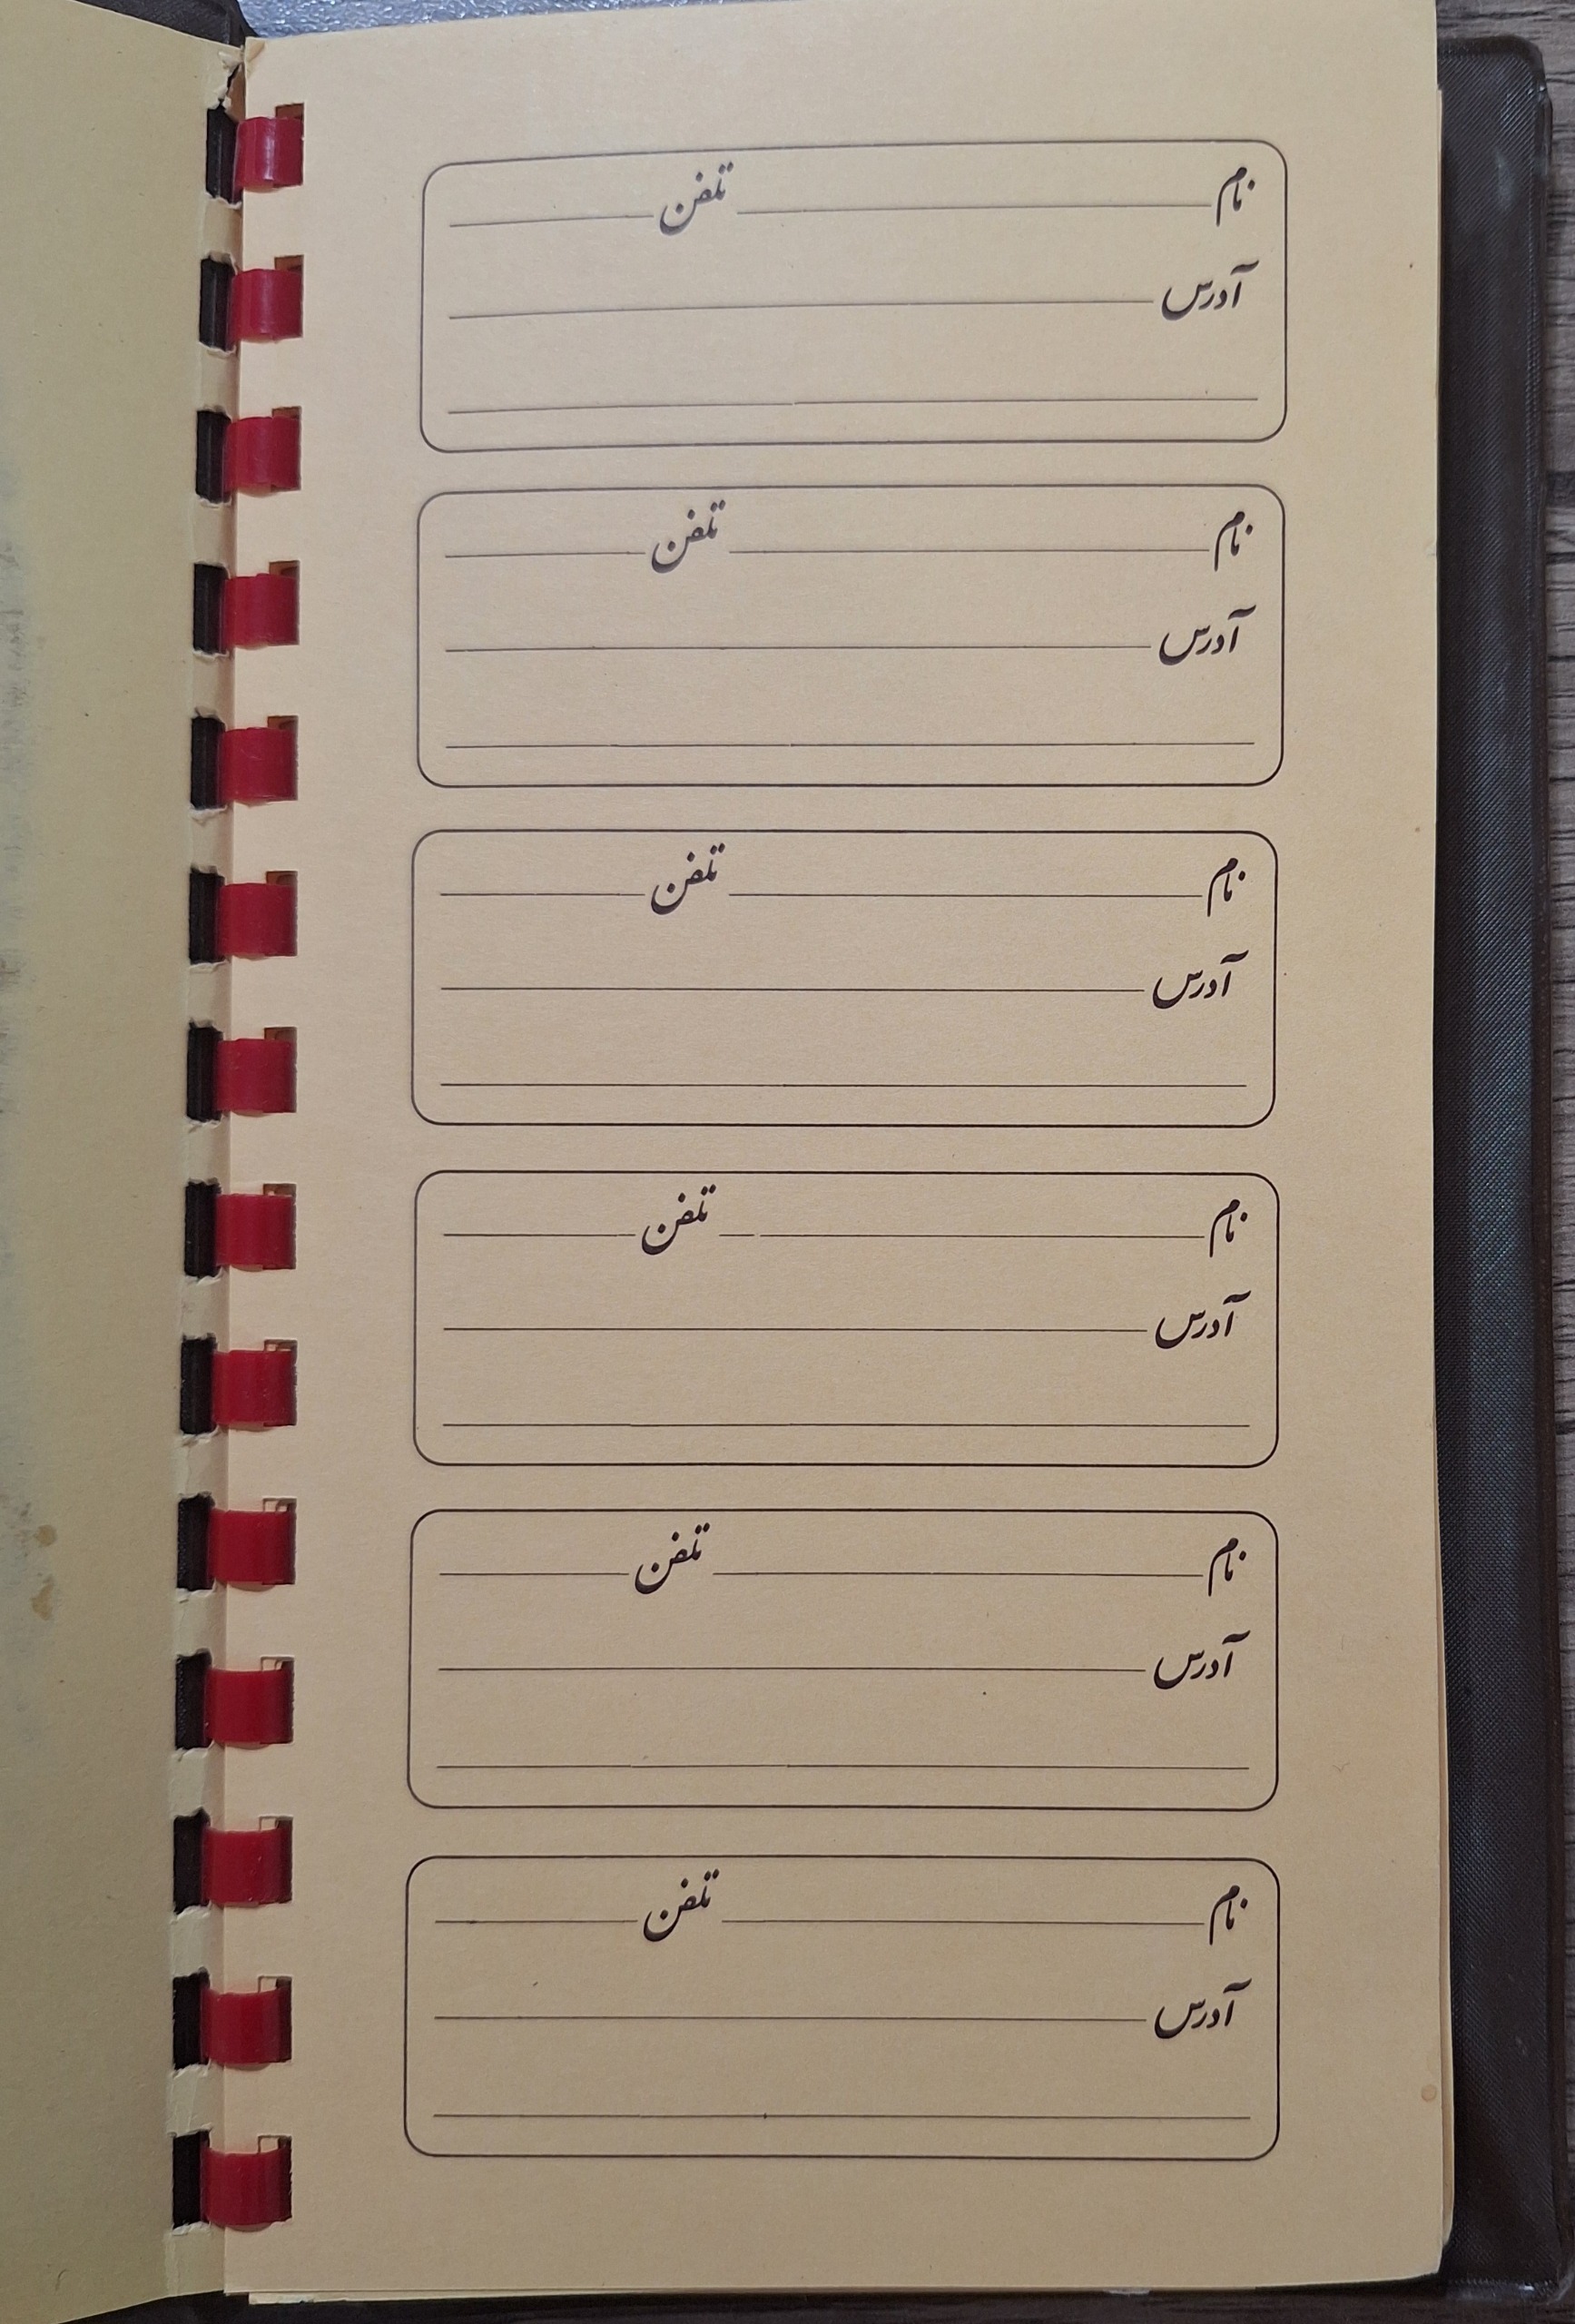 نام تلفن
آدرس
نام تلفن
آدرس
نام تلفن
آدرس
نام تلفن
آدرس
نام تلفن
آدرس
نام تلفن
آدرس